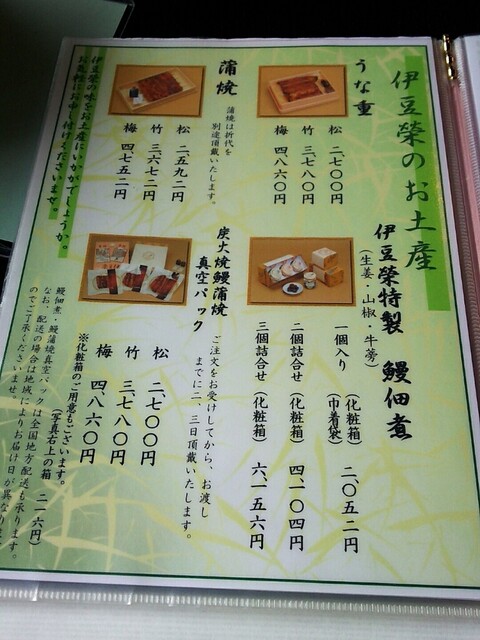 伊豆榮のお土産
うな重
松 二、七〇〇円
竹 三、七八〇円
梅 四、八六〇円
蒲焼
蒲焼は折代を
別途頂戴いたします。
松 二、五九二円
竹 三、六七二円
梅 四、七五二円
伊豆榮の味をお土産にいかがでしょうか。
お気軽にお申し付けくださいませ。
伊豆榮特製 鰻佃煮
(生姜・山椒・牛蒡)
一個入り (化粧箱)
(巾着袋) 二、〇五二円
二個詰合せ (化粧箱) 四、一〇四円
三個詰合せ (化粧箱) 六、一五六円
炭火焼鰻蒲焼
真空パック
ご注文をお受けしてから、お渡し
までに二、三日頂戴いたします。
松 二、七〇〇円
竹 三、七八〇円
梅 四、八六〇円
※化粧箱のご用意もございます。
(写真右上の箱 二一六円)
鰻佃煮・鰻蒲焼真空パックは全国地方配送も承ります。
なお、配送の場合は地域によりお届け日が異なります
のでご了承くださいませ。